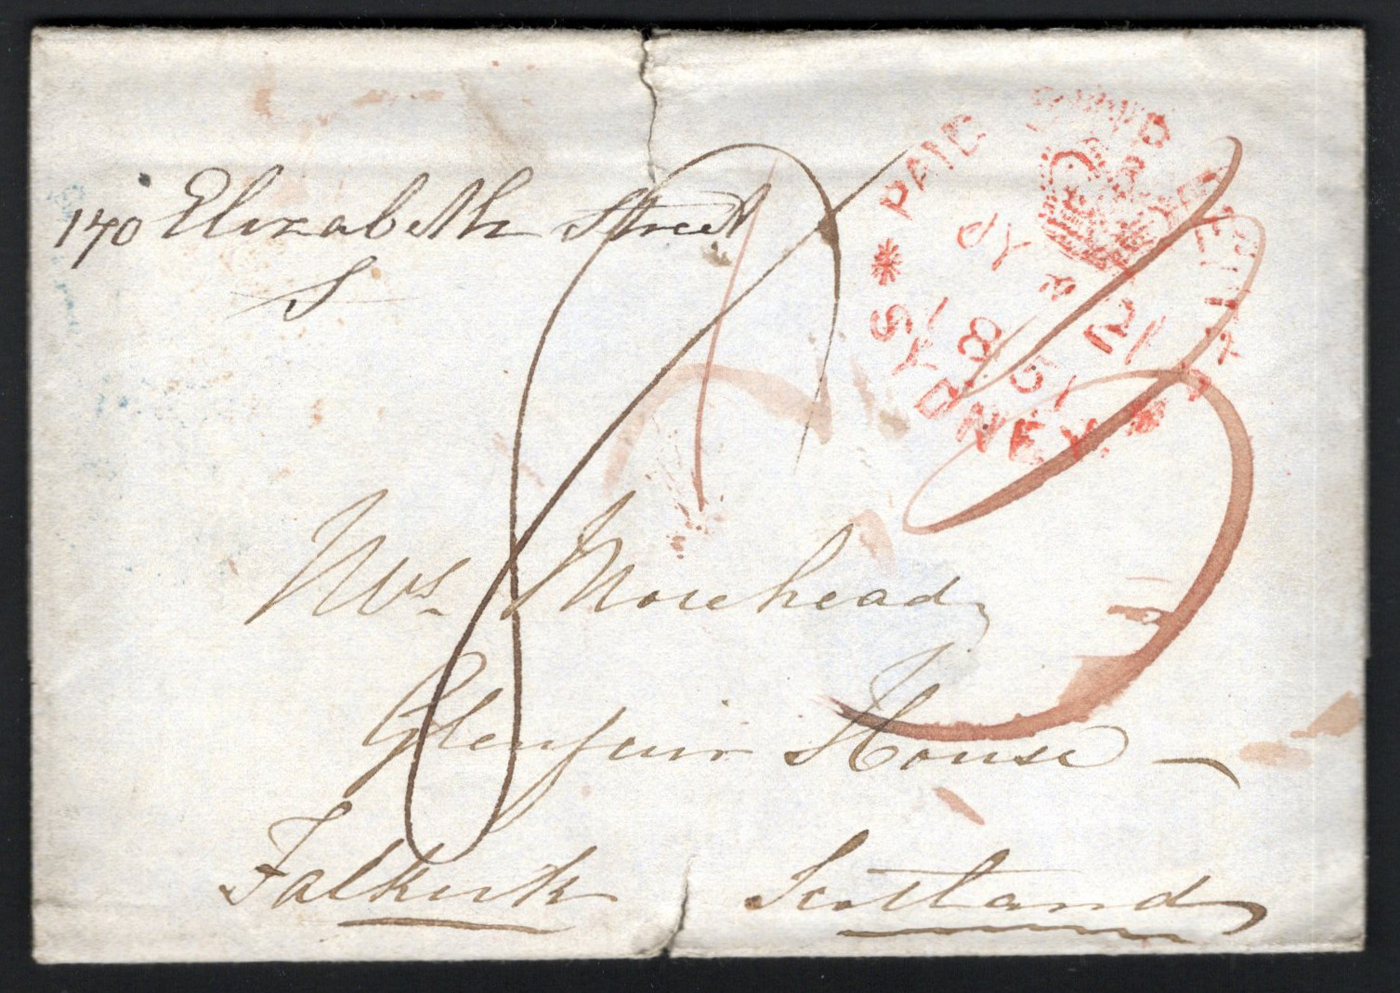 170 Elizabeth Street
S
PAID SHIP LETTER
* SYDNEY *
JY 21
1851
8
Mrs. Morehead
Glenfuir House
Falkirk Scotland